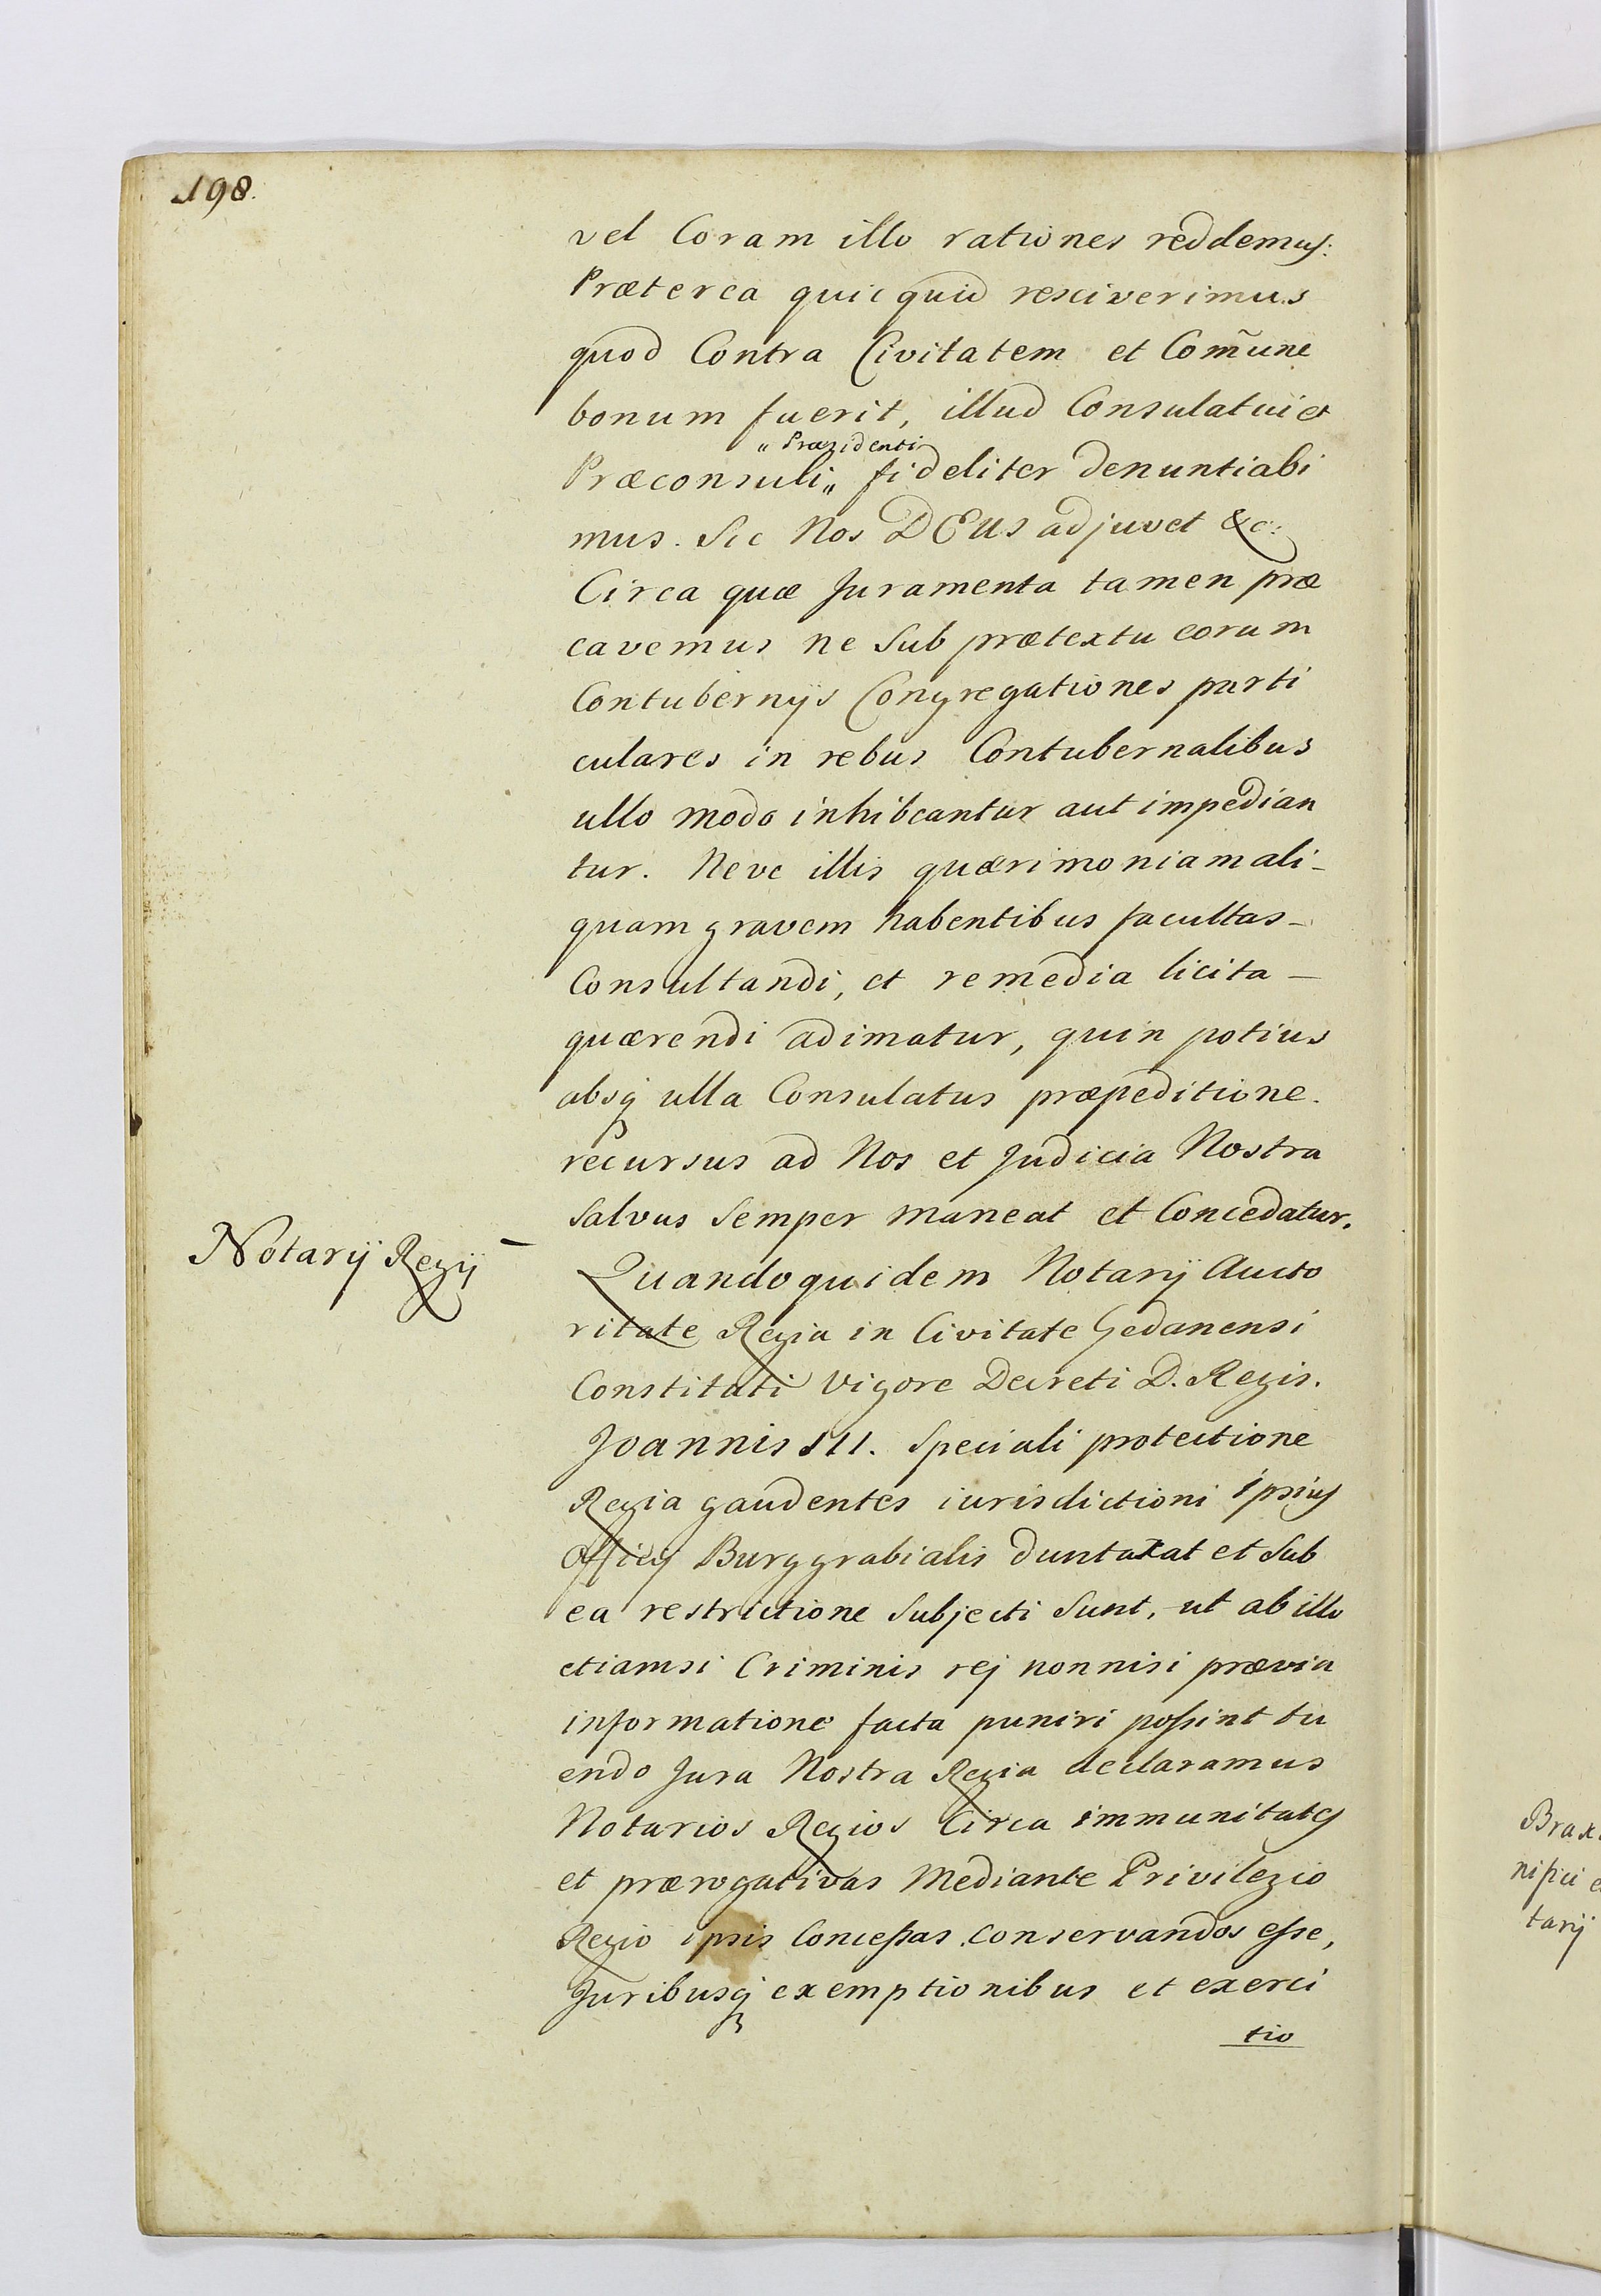 198.
vel Coram illo rationes reddemus:
Præterea quicquid resciverimus
quod Contra Civitatem et Com̃une
bonum fuerit, illud Consulatui et
„ Præzidenti
Præconsuli „ fideliter denuntiabi
mus. Sic Nos DEUS adjuvet &c:
Circa quæ Juramenta tamen præ
cavemus ne Sub prætextu eorum
Contubernijs Congregationes parti
culares in rebus Contubernalibus
ullo modo inhibeantur aut impedian
tur. Neve illis quærimoniam ali-
quam gravem habentibus facultas-
Consultandi, et remedia licita-
quærendi adimatur, quin potius
absq ulla Consulatus præpeditione.
recursus ad Nos et Judicia Nostra
Salvus Semper maneat et Concedatur.
Notarij Regij -
Quandoquidem Notarij Aucto
ritate Regia in Civitate Gedanensi
Constituti Vigore Decreti D. Regis.
Joannis III. Speciali protectione
Regia gaudentes iurisdictioni ipsius
Officij Burggrabialis duntaxat et Sub
ea restrictione Subjecti Sunt, ut ab illo
etiamsi Criminis rej nonnisi prævia
informatione facta puniri possint tu
endo Jura Nostra Regia declaramus
Notarios Regios Circa immunitates
et prærogativas Mediante Privilegio
Regio ipsis Concessas conservandos esse,
Juribusq exemptionibus et exerci
tio
Brax
nifici e
tarij